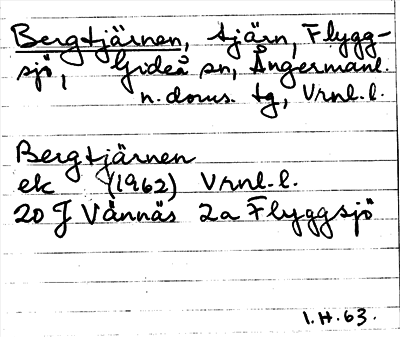 Bergtjärnen, tjärn, Flygg-
sjö, Gideå sn, Ångermanl.
n. doms. tg, Vrnl. l.
Bergtjärnen
ek (1962) Vrnl. l.
20 J Vännäs 2a Flyggsjö
I. H. 63.